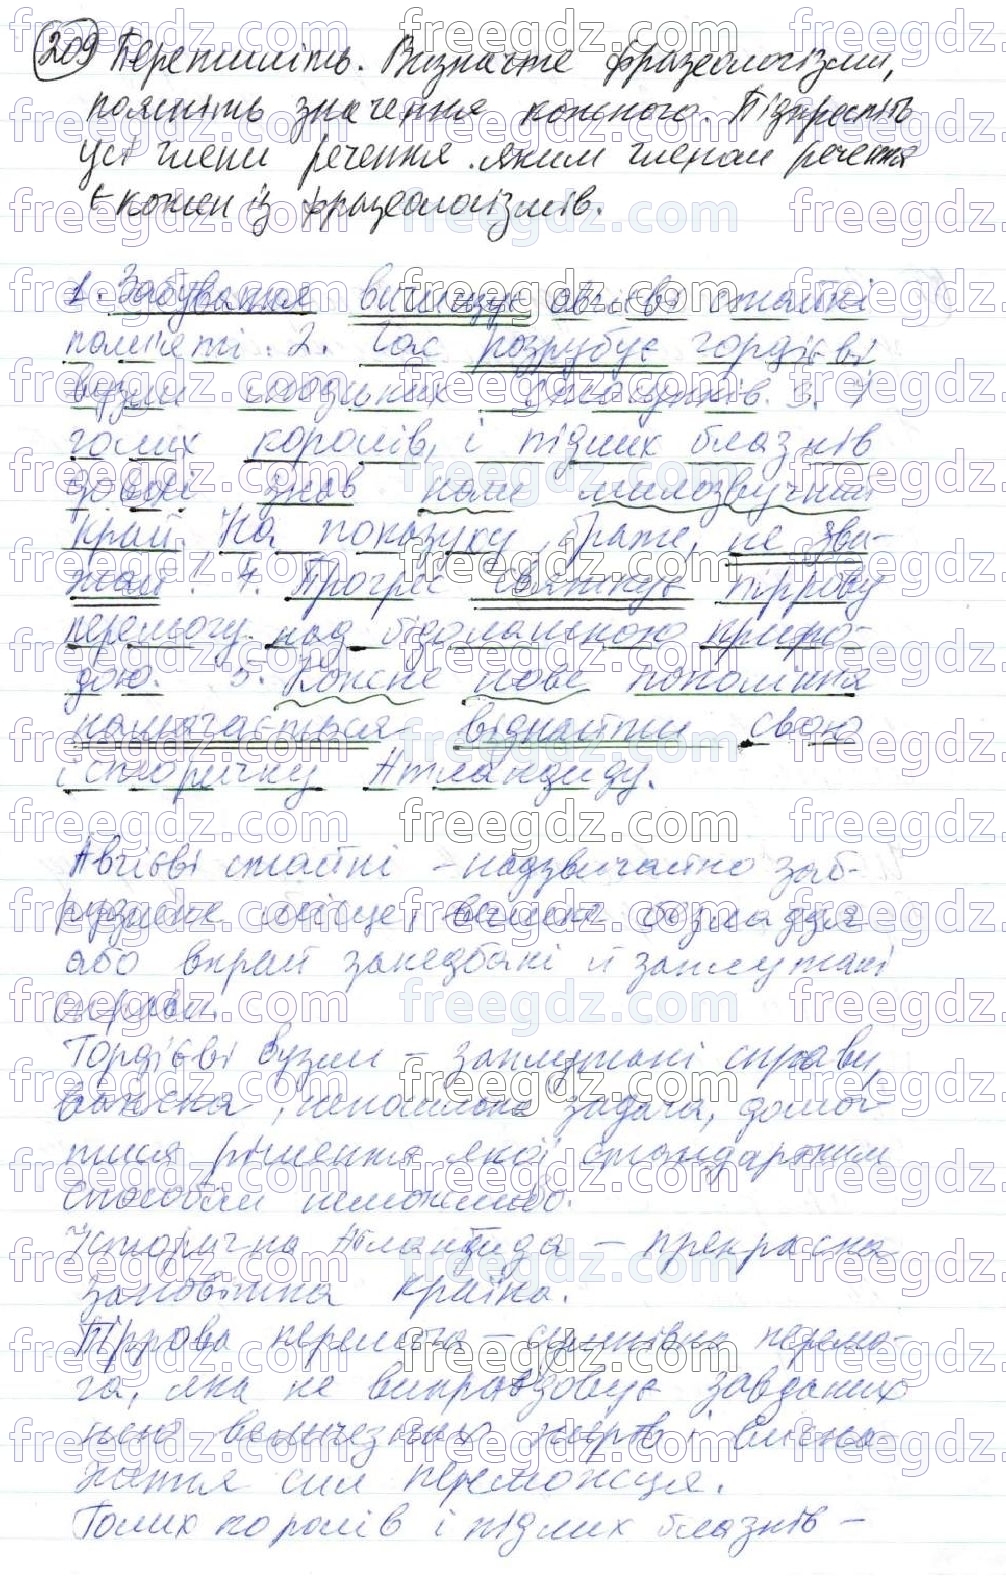 209 Перепишіть. Визначте фразеологізми,
поясніть значення кожного. Підкресліть
усі члени речення. яким членом речення
є кожен із фразеологізмів.
1. Забування вичищує авгієві стайні
пам'яті. 2. Час розрубує гордієві
вузли людських стосунків. 3. І
голих королів, і підлих блазнів
доволі знав наш милозвучний
край. На показуху, брате, не зва-
жай! 4. Прогрес святкує піррову
перемогу над бідолашною приро-
дою. 5. Кожне нове покоління
намагається віднайти свою
історичну Атлантиду.
Авгієві стайні – надзвичайно заб-
руднене місце, безладдя
або вкрай занедбані й заплутані
справи.
Гордієві вузли – заплутані справи,
задача, домог-
тися рішення якої стандартним
способом неможливо.
Історична Атлантида – прекрасна
заповітна країна.
Піррова перемога – сумнівна перемо-
га, яка не виправдовує завданих
нею величезних жертв і висна-
ження сил переможця.
Голих королів і підлих блазнів –
freegdz.com